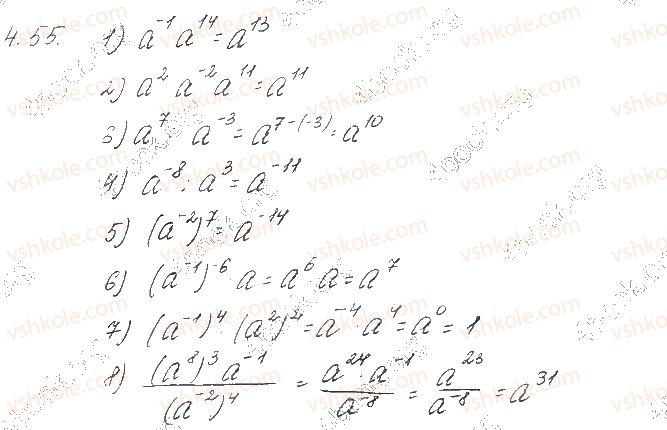 4.55. 1) a⁻¹ a¹⁴ = a¹³
2) a² a⁻² a¹¹ = a¹¹
3) a⁷ a⁻³ = a⁷⁻⁽⁻³⁾ = a¹⁰
4) a⁻⁸ : a³ = a⁻¹¹
5) (a⁻²)⁷ = a⁻¹⁴
6) (a⁻¹)⁻⁶ a = a⁶ a = a⁷
7) (a⁻¹)⁴ (a²)² = a⁻⁴ · a⁴ = a⁰ = 1
8) (a⁸)³ a⁻¹ / (a⁻²)⁴ = a²⁴ · a⁻¹ / a⁻⁸ = a²³ / a⁻⁸ = a³¹
vshkole.com